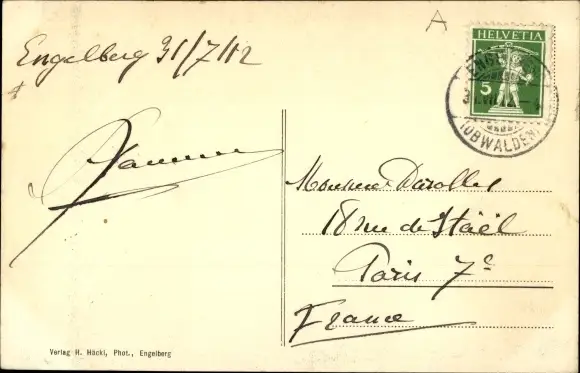 A
Engelberg 31/7/12
HELVETIA
5
(OBWALDEN)
Monsieur Darolles
18 rue de Staël
Paris 7e
France
Verlag H. Häckl, Phot., Engelberg